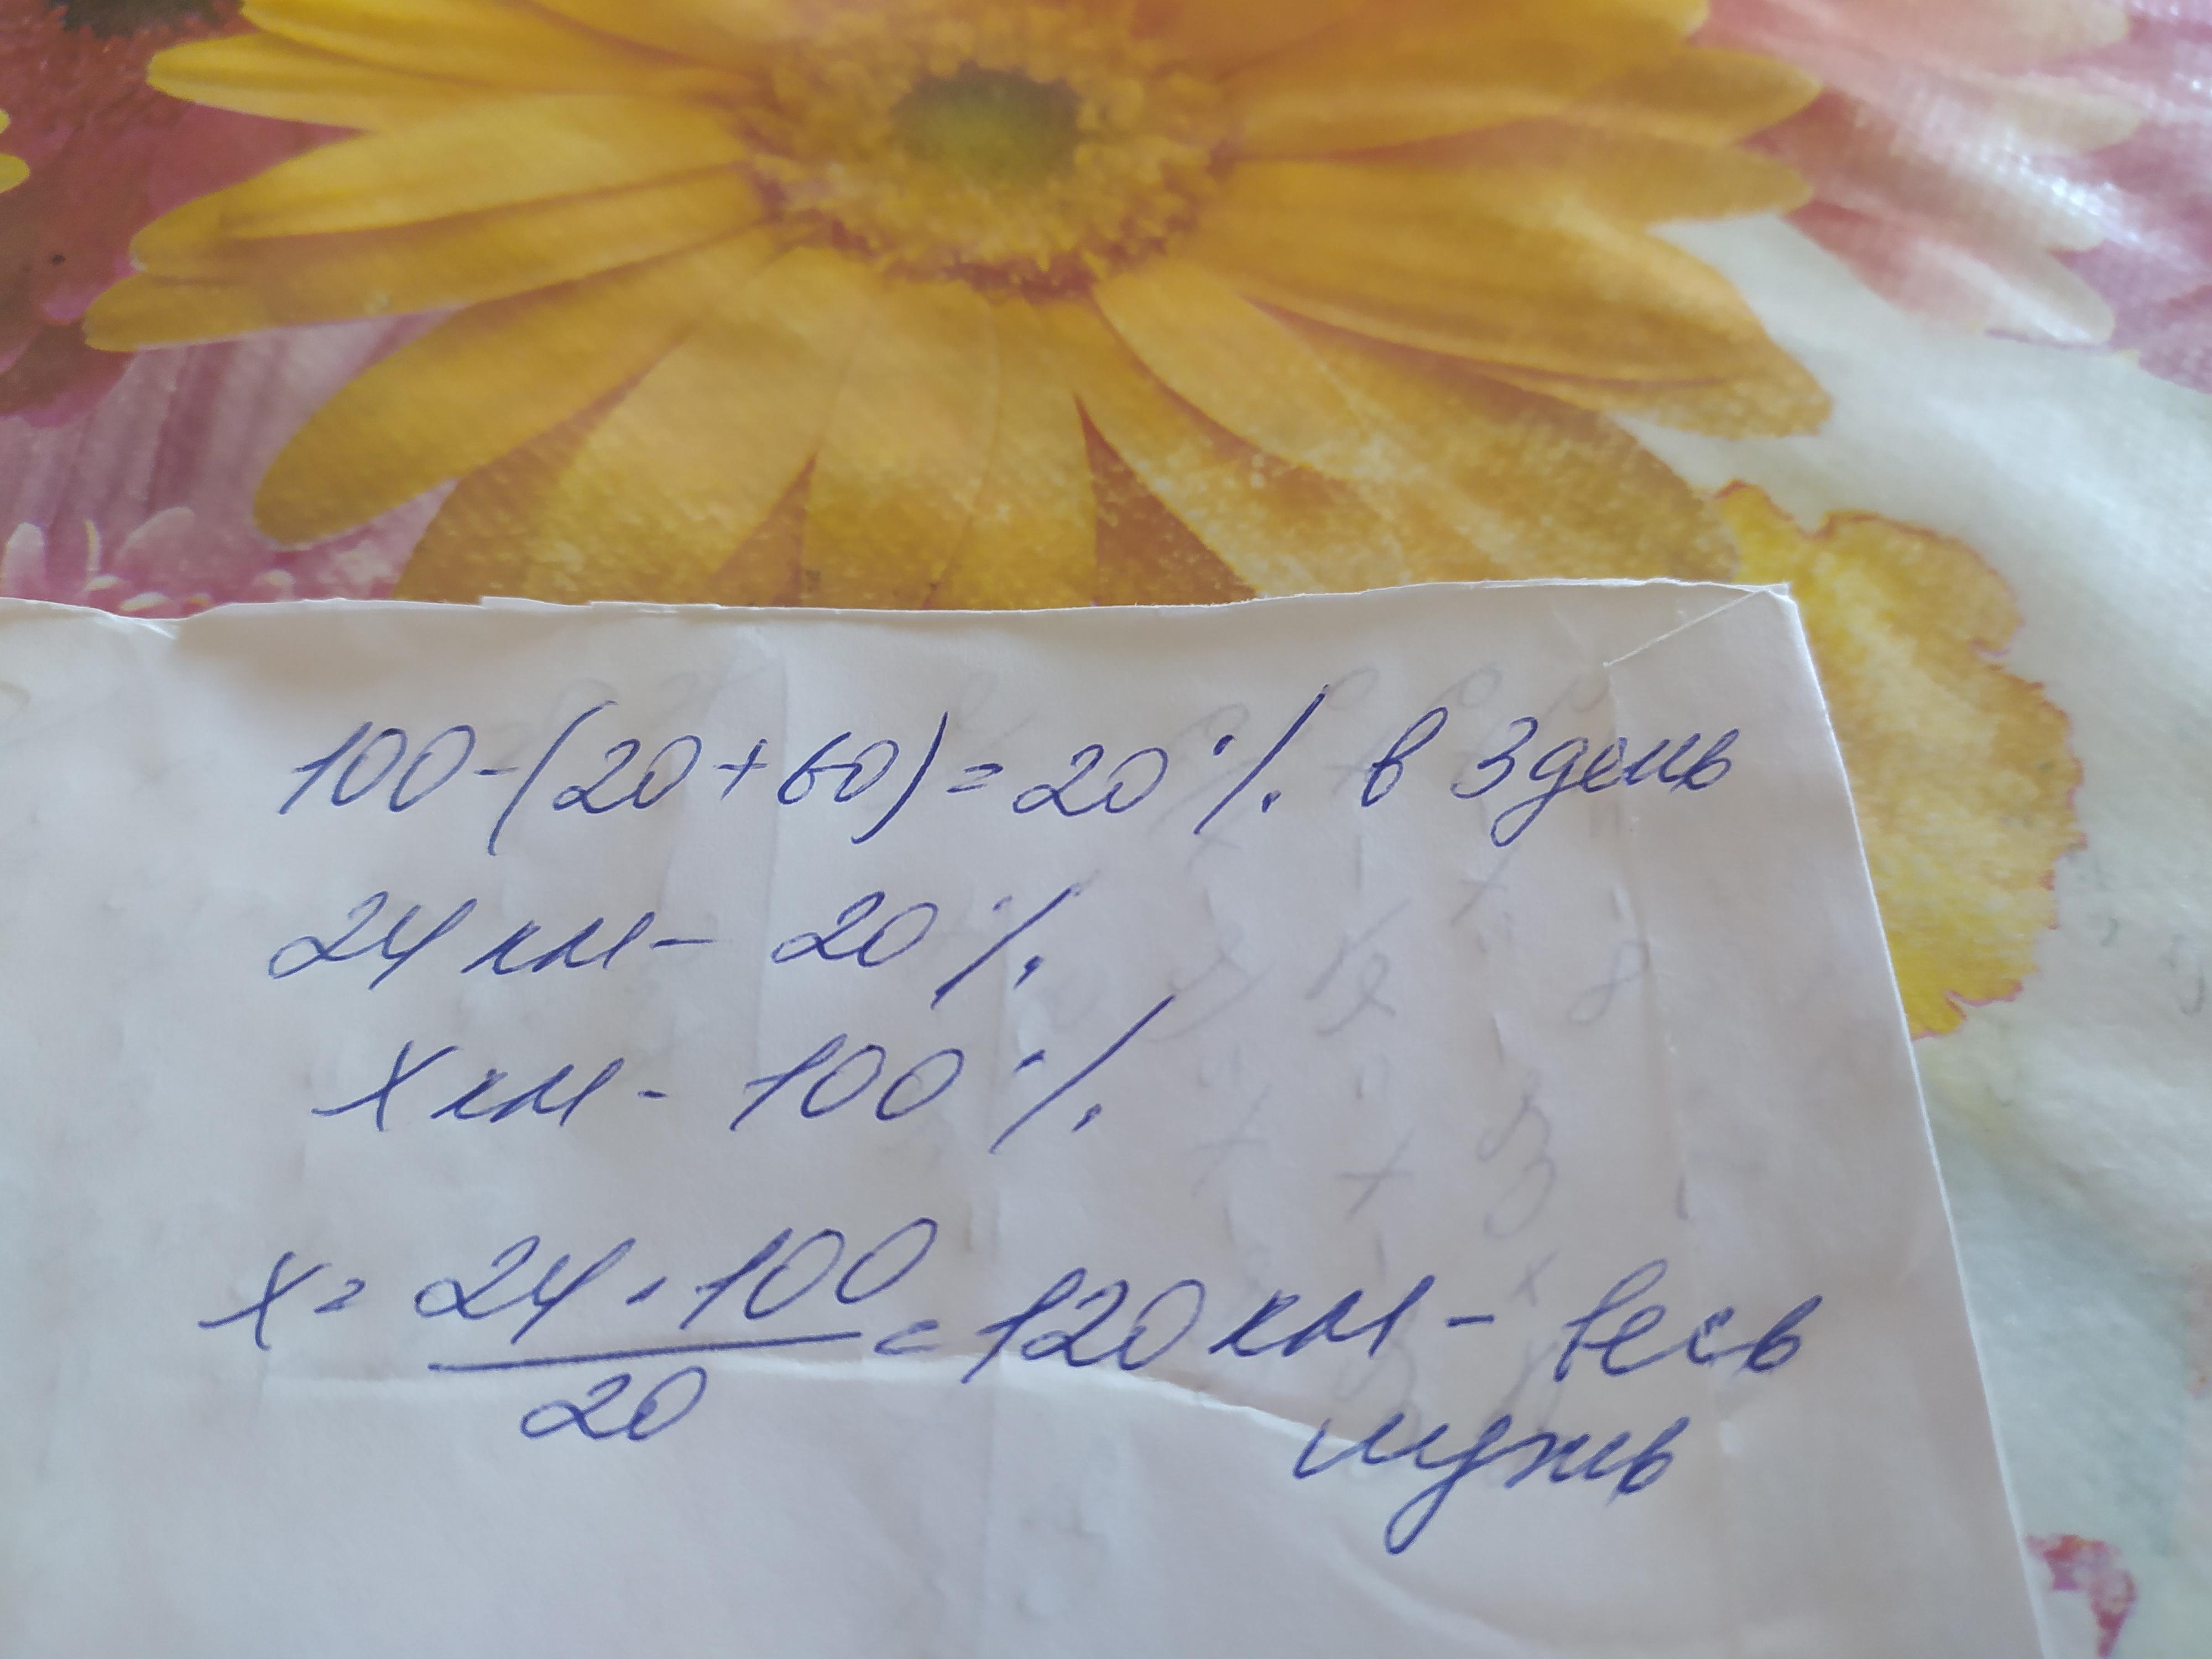 100-(20+60)=20% в 3 день
24 км - 20%
х км - 100%
х = 24 · 100 / 20 = 120 км - весь
путь